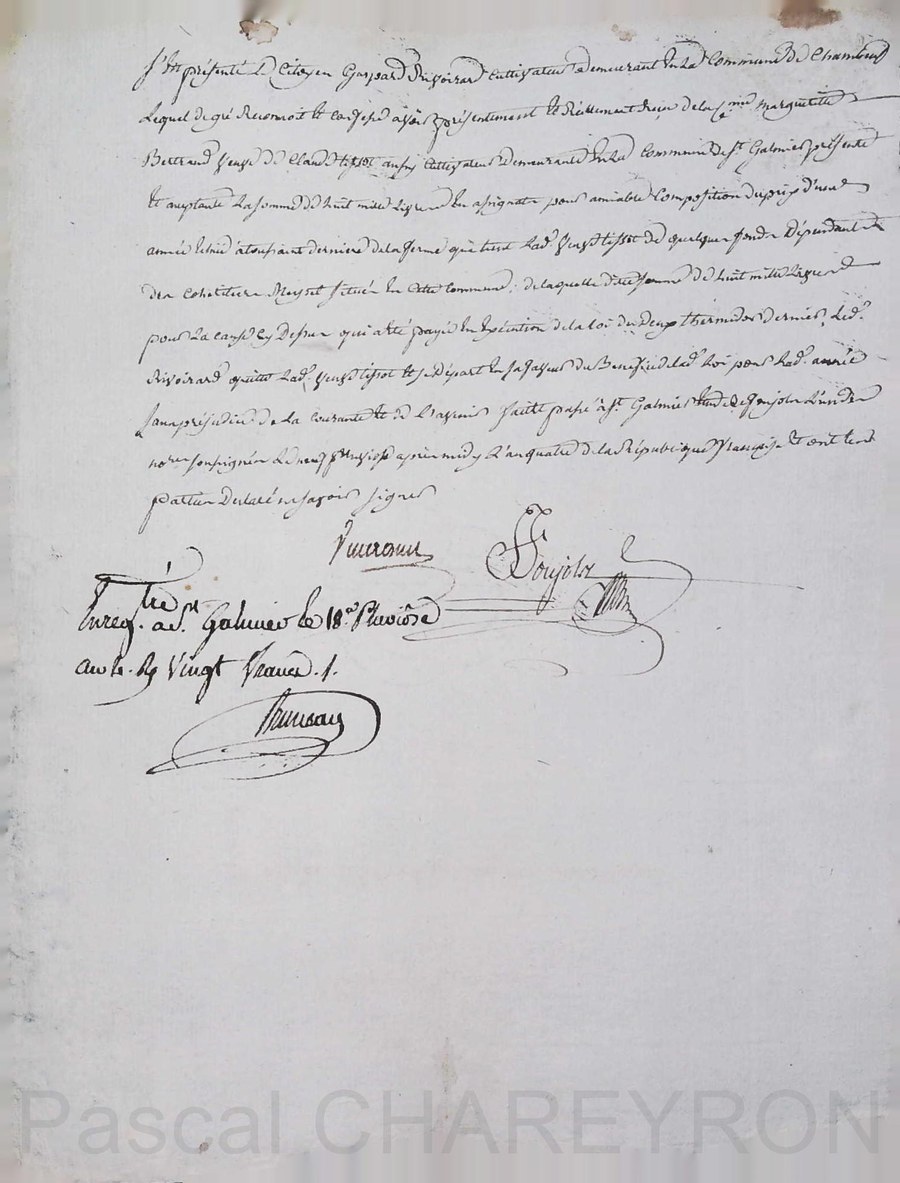 S'est présenté le Citoyen Gaspard Rivoirard Cultivateur demeurant en la Commune de Chambeuf
Lequel de gré Reconnoit et confesse avoir présentement et Réellement Reçu de la C.enne margueritte
Bertrand veuve de Claude tissot aussy Cultivateur demeurante en la Commune de St. Galmier présente
et acceptante La somme de huit mille Livres En assignats pour amiable Composition du prix d'une
année échue a toussaint derniere de la ferme que tient Lad.e veuve tissot de quelques fonds Dépendants
du Situés En Cette Commune, de laquelle ditte somme de huit mille Livres
pour La cause cy Dessus qui a été payé en Exécution de la Loi du Deux thermidor dernier, Led.
Rivoirard quitte Lad. veuve tissot et se Départ en sa faveur du Benefice de lad. Loi pour Lad. année
sans préjudice de La Courante et de L'avenir faitte passé à St. Galmier Etude de Ponjolz L'un des
no.res soussignés Le neuf pluviose après midy L'an quatre de la République française et ont les
parties Déclaré ne savoir signer
Ponjolz
Enreg.tré a St Galmier le 18.e Pluviôse
an 4e. R9 Vingt francs. /.
Pascal CHAREYRON